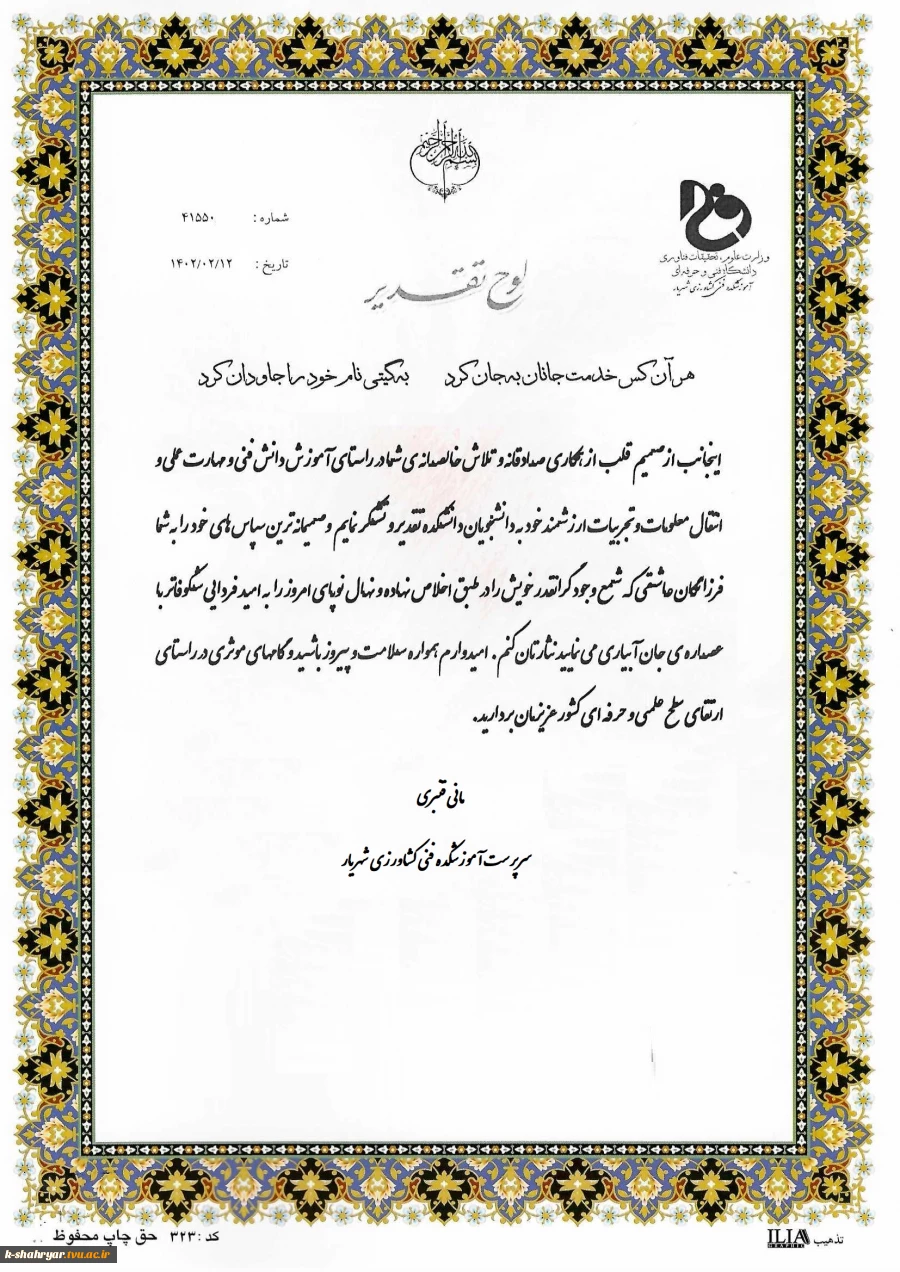 بسم الله الرحمن الرحیم
وزارت علوم، تحقیقات فناوری
دانشگاه فنی و حرفه ای
آموزشکده فنی کشاورزی شهریار
شماره : ۴۱۵۵۰
تاریخ : ۱۴۰۲/۰۲/۱۲
لوح تقدیر
هر آن کس خدمت جانان به جان کرد به گیتی نام خود را جاودان کرد
اینجانب از صمیم قلب از همکاری صادقانه و تلاش خالصانه ی شما در راستای آموزش دانش فنی و مهارت عملی و
انتقال معلومات و تجربیات ارزشمند خود به دانشجویان دانشکده تقدیر و تشکر نمایم و صمیمانه ترین سپاس های خود را به شما
فرزانگان عاشقی که شمع وجود گرانقدر خویش را در طبق اخلاص نهاده و نهال نوپای امروز را به امید فردایی شکوفاتر با
عصاره ی جان آبیاری می نمایید نثارتان کنم . امیدوارم همواره سلامت و پیروز باشید و گامهای موثری در راستای
ارتقای سطح علمی و حرفه ای کشور عزیزمان بردارید.
مانی قنبری
سرپرست آموزشکده فنی کشاورزی شهریار
تذهیب ILIA GRAPHIC
کد : ۳۲۳ حق چاپ محفوظ
k-shahryar.tvu.ac.ir